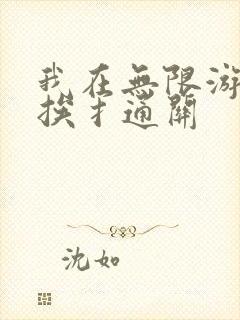 我在無限游
挨扌通關
沈如